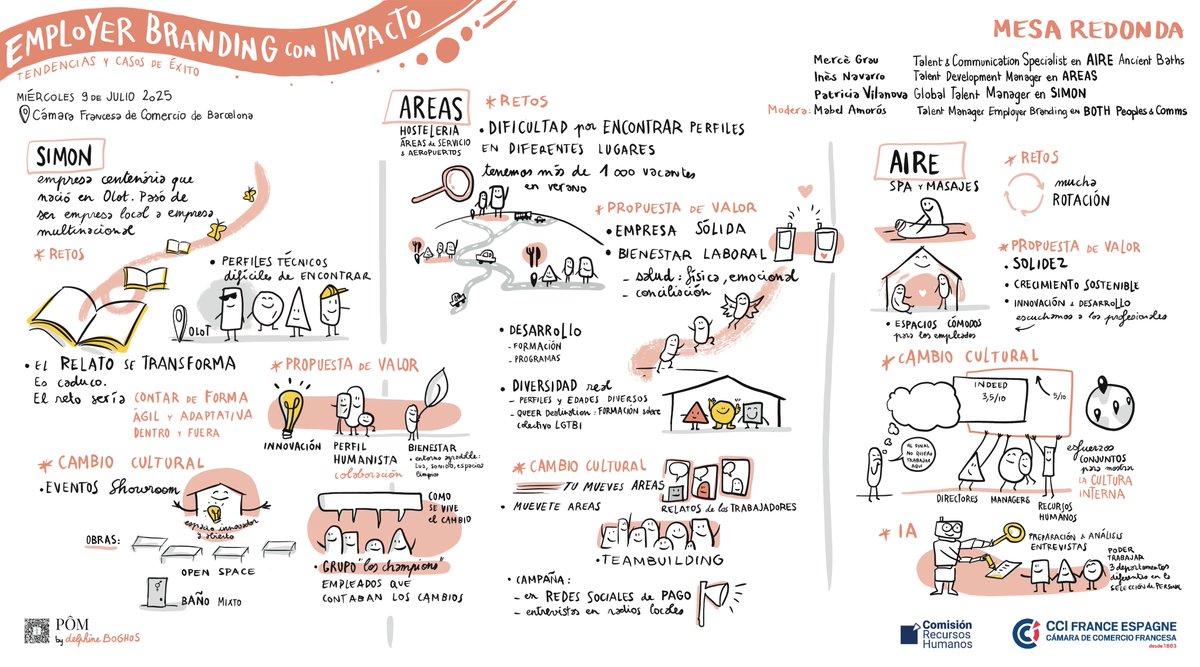 EMPLOYER BRANDING CON IMPACTO
TENDENCIAS Y CASOS DE ÉXITO
MIÉRCOLES 9 DE JULIO 2025
Cámara Francesa de Comercio de Barcelona
MESA REDONDA
Mercè Grau Talent & Communication Specialist en AIRE Ancient Baths
Inès Navarro Talent Development Manager en AREAS
Patricia Vilanova Global Talent Manager en SIMON
Modera: Mabel Amorós Talent Manager Employer Branding en BOTH Peoples & Comms
SIMON
empresa centenaria que
nació en Olot. Pasó de
ser empresa local a empresa
multinacional
* RETOS
• PERFILES TÉCNICOS
difíciles de ENCONTRAR
OLOT
• EL RELATO SE TRANSFORMA
Es caduco.
El reto sería CONTAR DE FORMA
ÁGIL Y ADAPTATIVA
DENTRO Y FUERA
* PROPUESTA DE VALOR
INNOVACIÓN
PERFIL
HUMANISTA
colaboración
BIENESTAR
• entorno agradable:
Luz, sonido, espacios
limpios
* CAMBIO CULTURAL
• EVENTOS Showroom
espacio innovador
& abierto
OBRAS:
OPEN SPACE
BAÑO MIXTO
COMO
SE VIVE
el CAMBIO
• GRUPO "los champions"
EMPLEADOS QUE
CONTABAN LOS CAMBIOS
AREAS
HOSTELERIA
ÁREAS DE SERVICIO
& AEROPUERTOS
* RETOS
• DIFICULTAD por ENCONTRAR PERFILES
EN DIFERENTES LUGARES
tenemos más de 1 000 vacantes
en verano
* PROPUESTA DE VALOR
• EMPRESA SÓLIDA
• BIENESTAR LABORAL
- salud: física, emocional
- conciliación
• DESARROLLO
- FORMACIÓN
- PROGRAMAS
• DIVERSIDAD real
- PERFILES Y EDADES DIVERSOS
- QUEER Destination: FORMACIÓN sobre
colectivo LGTBI
* CAMBIO CULTURAL
TU MUEVES AREAS
• MUEVETE AREAS
RELATOS de los TRABAJADORES
• TEAMBUILDING
• CAMPAÑA:
- en REDES SOCIALES de PAGO
- entrevistas en radios locales
AIRE
SPA Y MASAJES
* RETOS
mucha
ROTACIÓN
• ESPACIOS CÓMODOS
para los empleados
* PROPUESTA DE VALOR
• SOLIDEZ
• CRECIMIENTO SOSTENIBLE
• INNOVACIÓN & DESARROLLO
escuchamos a los profesionales
* CAMBIO CULTURAL
INDEED
3,5/10
5/10
AL FINAL
NO QUIERO
TRABAJAR
AQUÍ
DIRECTORES
MANAGERS
RECURSOS
HUMANOS
esfuerzos
CONJUNTOS
para mostrar
LA CULTURA
INTERNA
* IA
PREPARACIÓN & ANÁLISIS
ENTREVISTAS
PODER
TRABAJAR
3 departamentos
diferentes en la
SELECCIÓN DE PERSONAL
PÔM
by delphine BOGHOS
Comisión
Recursos
Humanos
CCI FRANCE ESPAGNE
CÁMARA DE COMERCIO FRANCESA
desde 1883